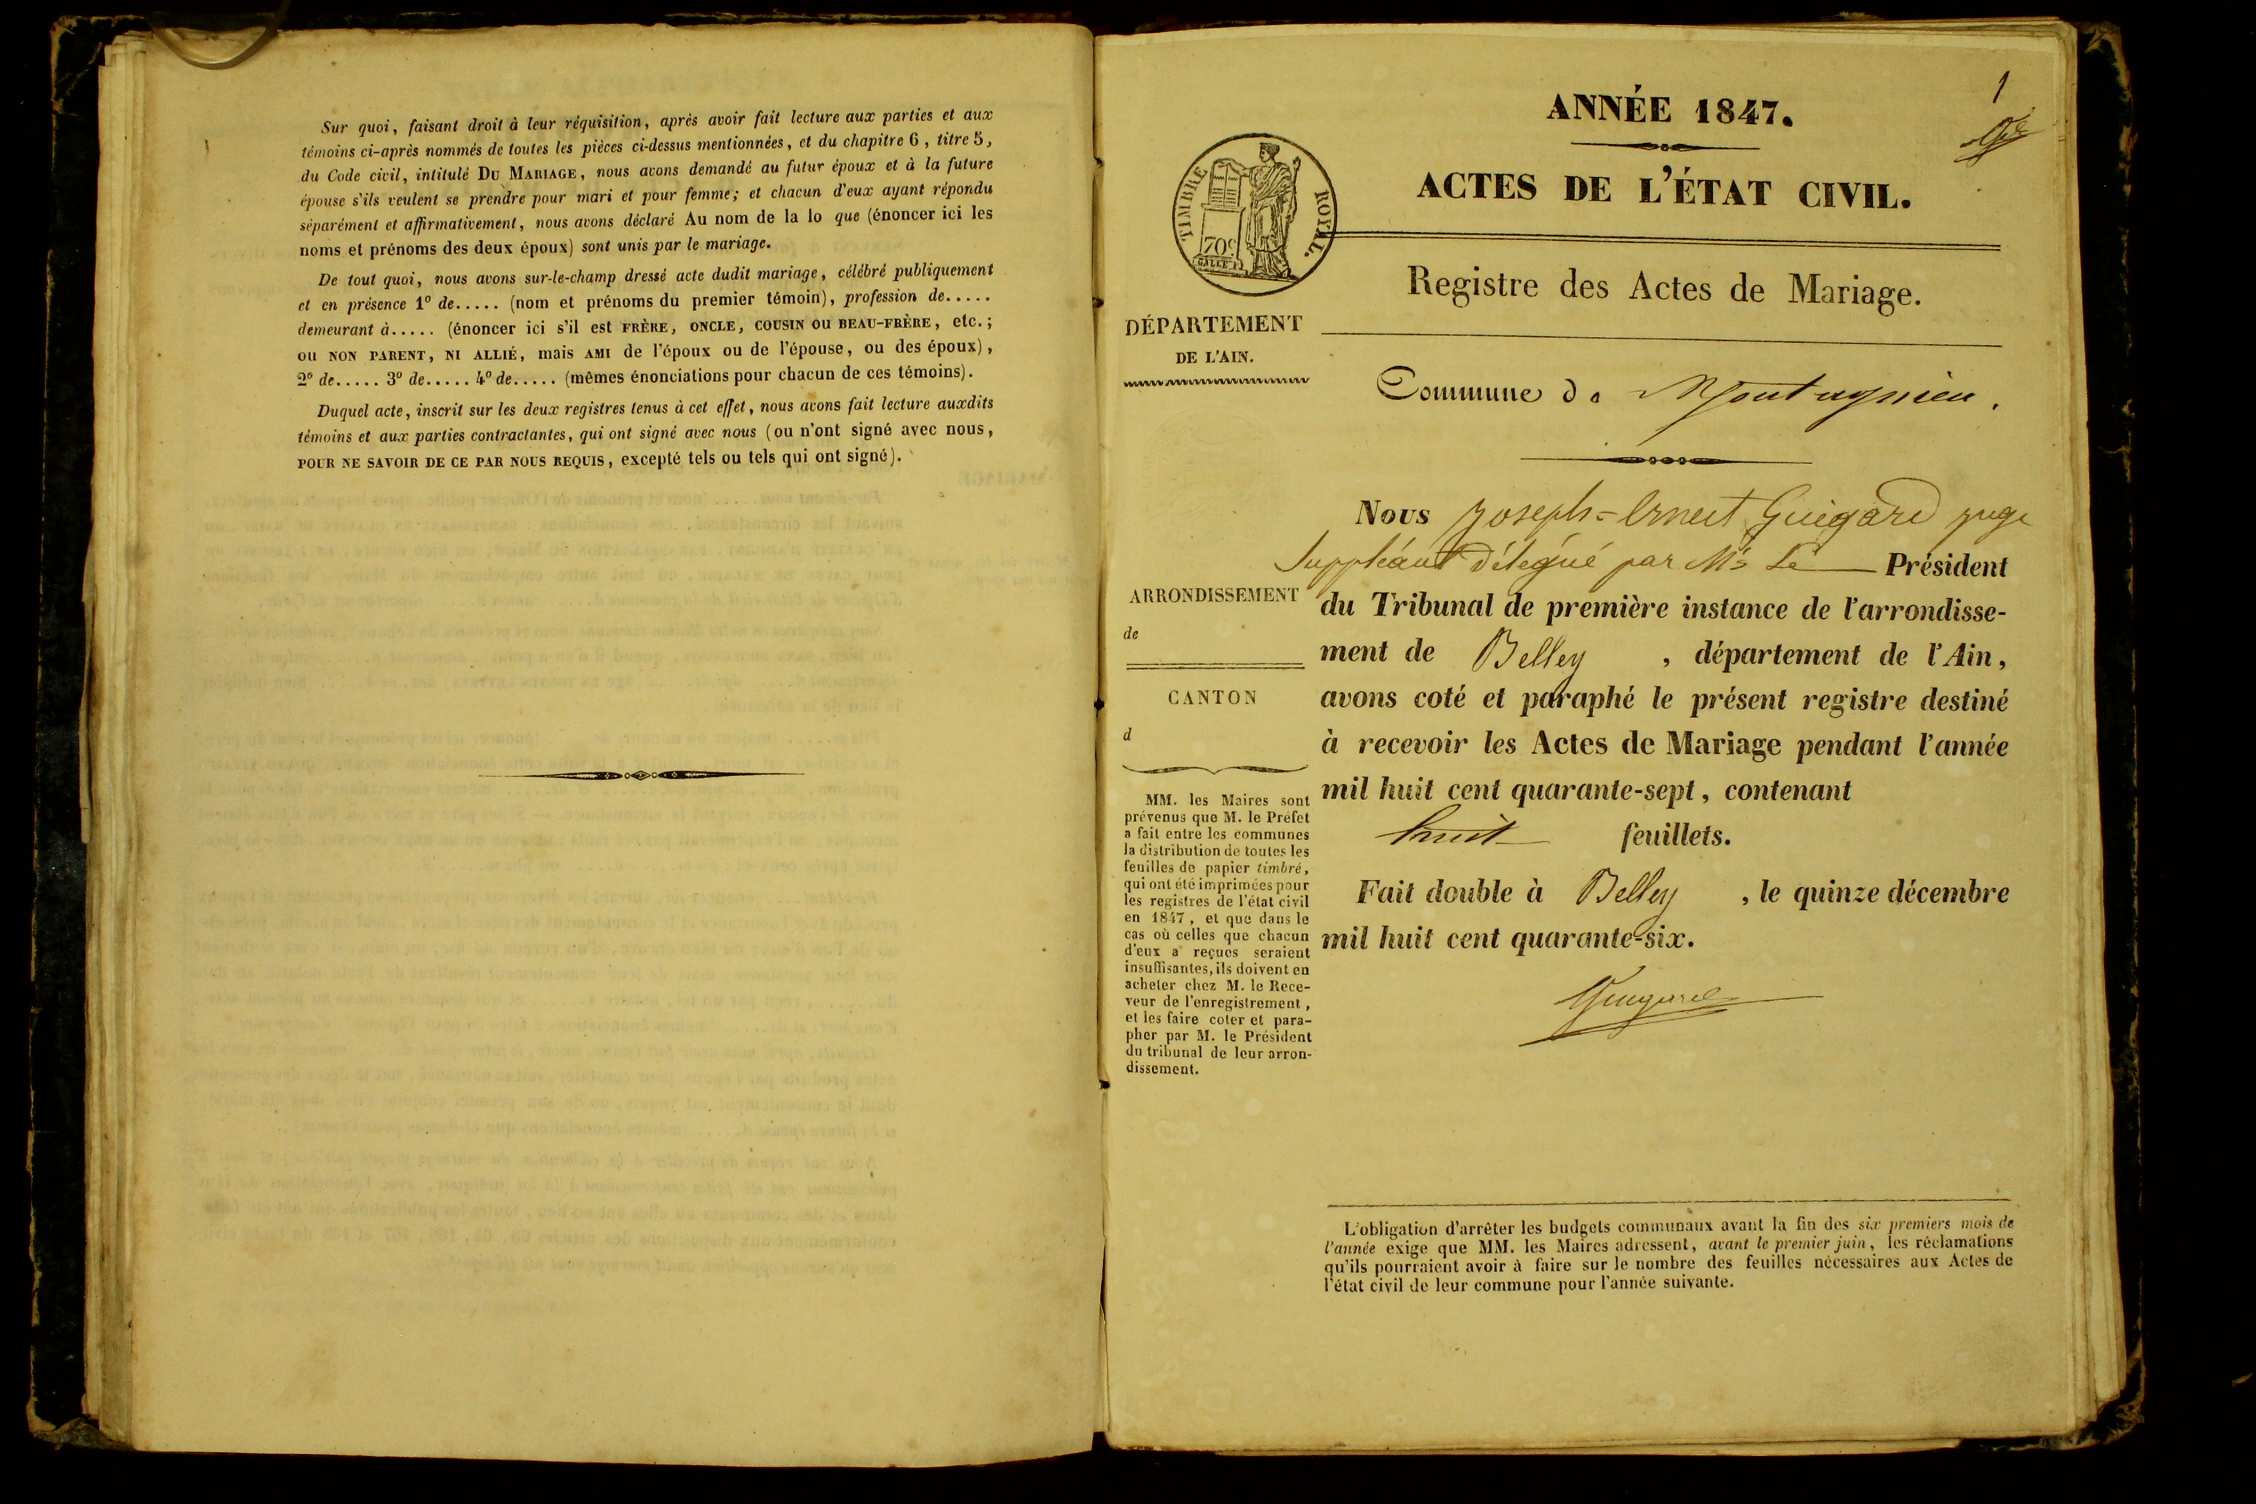 Sur quoi, faisant droit à leur réquisition, après avoir fait lecture aux parties et aux
témoins ci-après nommés de toutes les pièces ci-dessus mentionnées, et du chapitre 6, titre 5,
du Code civil, intitulé DU MARIAGE, nous avons demandé au futur époux et à la future
épouse s'ils veulent se prendre pour mari et pour femme; et chacun d'eux ayant répondu
séparément et affirmativement, nous avons déclaré Au nom de la lo que (énoncer ici les
noms et prénoms des deux époux) sont unis par le mariage.
De tout quoi, nous avons sur-le-champ dressé acte dudit mariage, célébré publiquement
et en présence 1º de..... (nom et prénoms du premier témoin), profession de.....
demeurant à..... (énoncer ici s'il est FRÈRE, ONCLE, COUSIN OU BEAU-FRÈRE, etc.;
OU NON PARENT, NI ALLIÉ, mais AMI de l'époux ou de l'épouse, ou des époux),
2º de..... 3º de..... 4º de..... (mêmes énonciations pour chacun de ces témoins).
Duquel acte, inscrit sur les deux registres tenus à cet effet, nous avons fait lecture auxdits
témoins et aux parties contractantes, qui ont signé avec nous (ou n'ont signé avec nous,
POUR NE SAVOIR DE CE PAR NOUS REQUIS, excepté tels ou tels qui ont signé).
1
ANNÉE 1847.
ACTES DE L'ÉTAT CIVIL.
TIMBRE ROYAL.
70c
Registre des Actes de Mariage.
DÉPARTEMENT
DE L'AIN.
Commune de Montagnieu.
Nous Joseph=Ernest Guigard juge
Suppléant délégué par Mr Le Président
du Tribunal de première instance de l'arrondisse-
ment de Belley, département de l'Ain,
avons coté et paraphé le présent registre destiné
à recevoir les Actes de Mariage pendant l'année
mil huit cent quarante-sept, contenant
huit feuillets.
Fait double à Belley, le quinze décembre
mil huit cent quarante-six.
Guigard
ARRONDISSEMENT
de
CANTON
d
MM. les Maires sont
prévenus que M. le Préfet
a fait entre les communes
la distribution de toutes les
feuilles de papier timbré,
qui ont été imprimées pour
les registres de l'état civil
en 1847, et que dans le
cas où celles que chacun
d'eux a reçues seraient
insuffisantes, ils doivent en
acheter chez M. le Rece-
veur de l'enregistrement,
et les faire coter et para-
pher par M. le Président
du tribunal de leur arron-
dissement.
L'obligation d'arrêter les budgets communaux avant la fin des six premiers mois de
l'année exige que MM. les Maires adressent, avant le premier juin, les réclamations
qu'ils pourraient avoir à faire sur le nombre des feuilles nécessaires aux Actes de
l'état civil de leur commune pour l'année suivante.